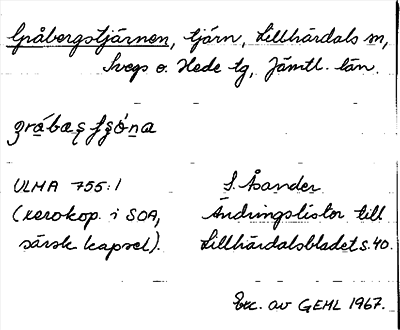 Gråbergstjärnen, tjärn, Lillhärdals sn,
Svegs o. Hede tg, Jämtl. län.
ULMA 755:1
S. Åsander
(xerokop. i SOA,
Ändringslistor till
särsk kapsel).
Lillhärdalsbladet s. 40.
Exc. av GEHL 1967.